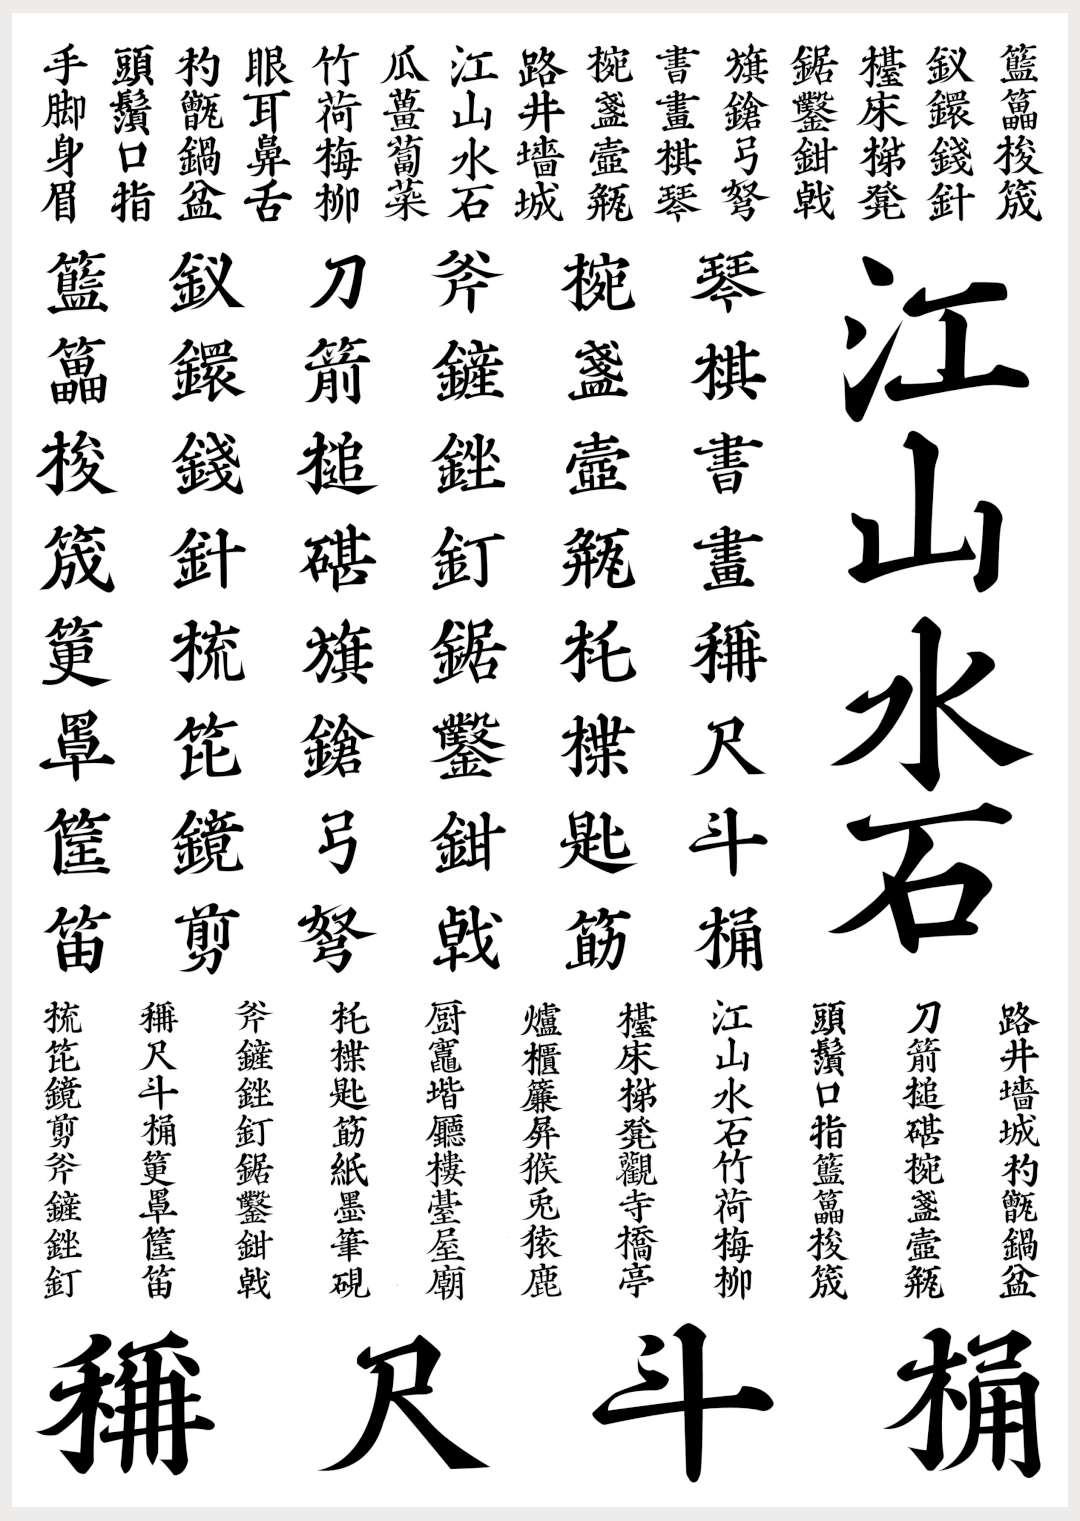 籃梭筬
釵鐶錢針
檯床梯凳
鋸鑿鉗戟
旗鎗弓弩
書畫棋琴
椀盞壺瓶
路井墻城
江山水石
瓜薑蔔菜
竹荷梅柳
眼耳鼻舌
杓甑鍋盆
頭鬚口指
手脚身眉
江山水石
琴棋書畫稱尺斗桶
椀盞壺瓶托楪匙筯
斧鏟銼釘鋸鑿鉗戟
刀箭槌碪旗鎗弓弩
釵鐶錢針梳笓鏡剪
籃梭筬筻罩筐笛
路井墻城杓甑鍋盆
刀箭槌碪椀盞壺瓶
頭鬚口指籃梭筬
江山水石竹荷梅柳
檯床梯凳觀寺橋亭
爐櫃簾屏猴兎猿鹿
厨竈堦廳樓臺屋廟
托楪匙筯紙墨筆硯
斧鏟銼釘鋸鑿鉗戟
稱尺斗桶筻罩筐笛
梳笓鏡剪斧鏟銼釘
稱尺斗桶